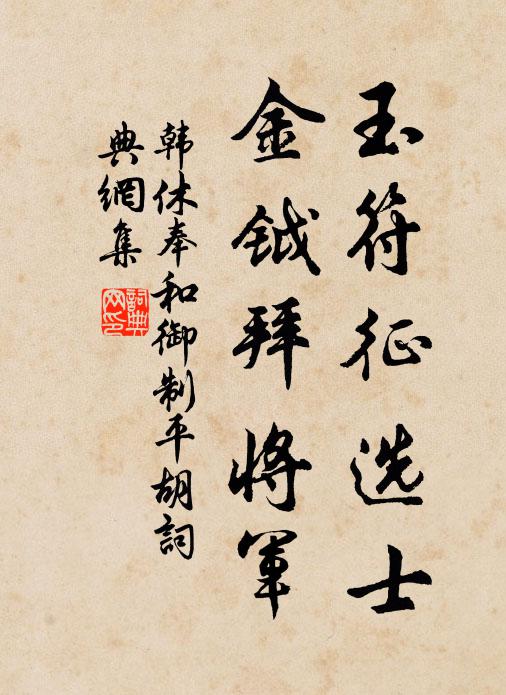 玉符征选士
金钺拜将军
韩休奉和御制平胡詞
典網集
詞典网印